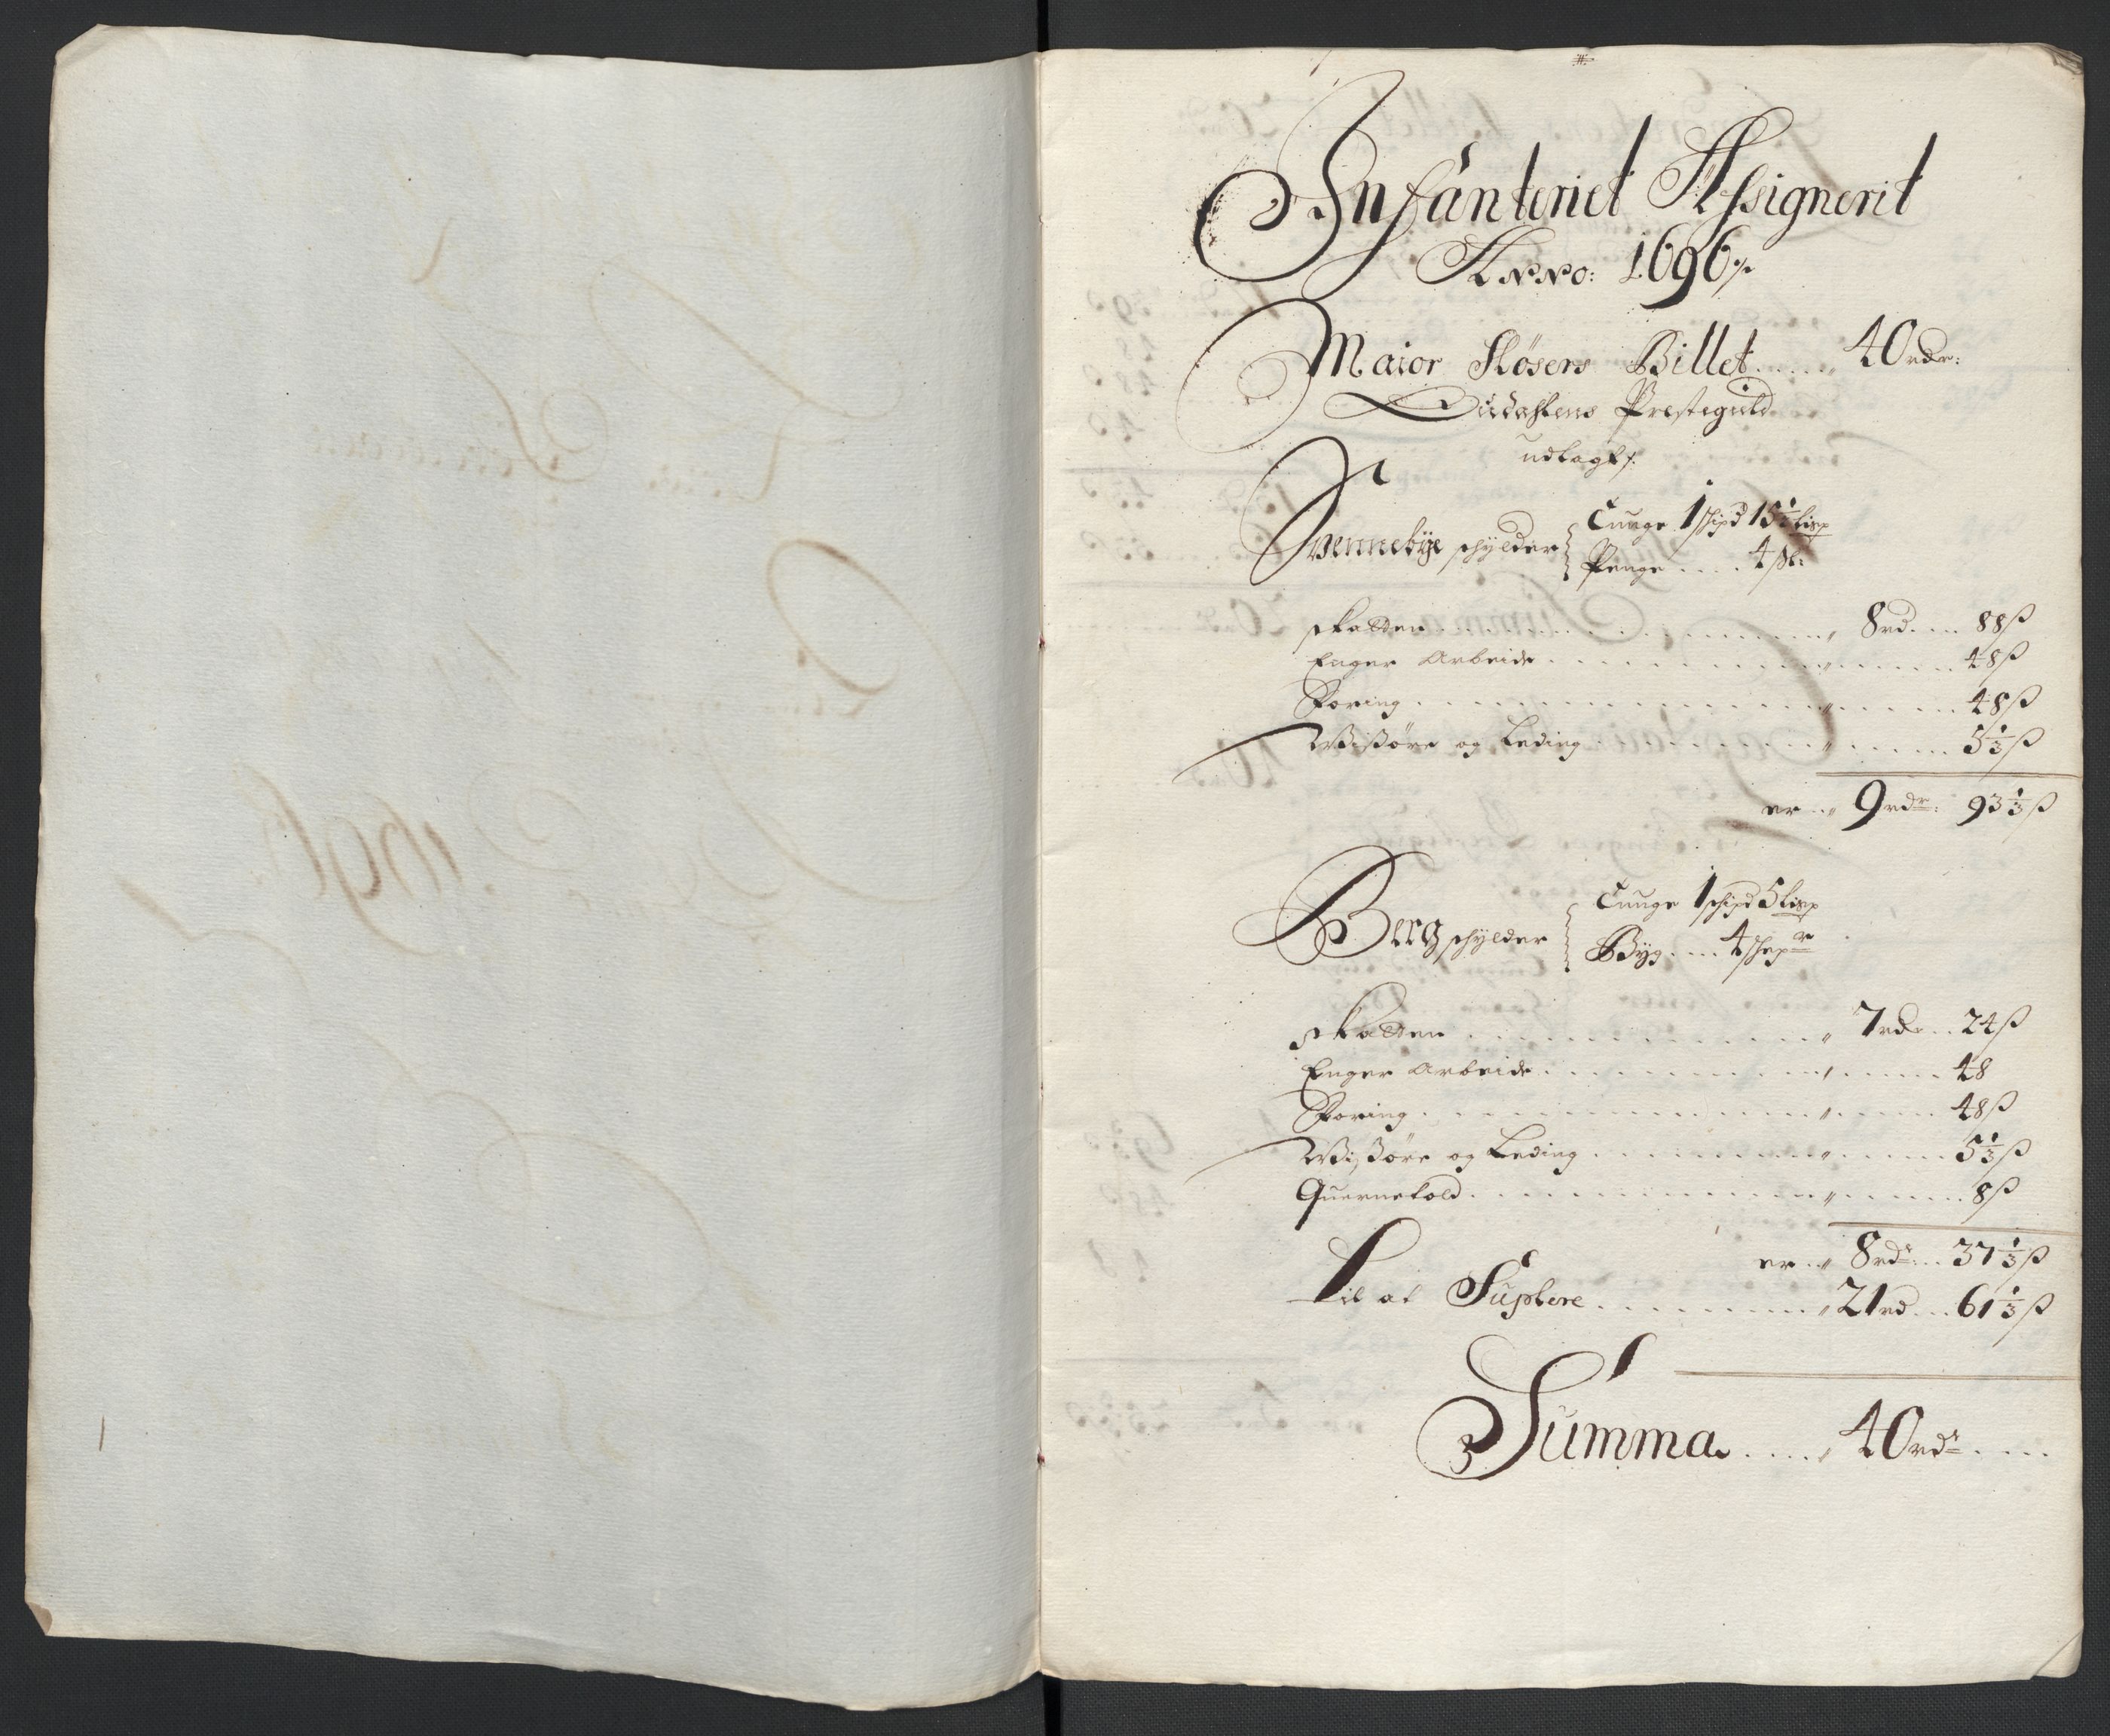 Infanteriet Assignerit
Anno: 1696
Maior Sløsers Billet ..... 40 rdr:
Prestegield
udlagt
Svennebye schylder Tunge 1 schipd 15½ lispp
Penge .... 4 sk:
skatten ........ 8 rd .... 88 ß
Enger Arbeide ........ 48 ß
Foring ........ 48 ß
Wisøre og Leding ........ 5⅓ ß
er .. 9 rdr: 93⅓ ß
Berg schylder Tunge 1 schipd 5 lispp
Byg .... 4 schepr
skatten ........ 7 rdr .. 24 ß
Enger Arbeide ........ 48
Foring ........ 48 ß
Wisøre og Leding ........ 5⅓ ß
Quernetold ........ 8 ß
er .. 8 rdr: .. 37⅓ ß
Til at Suplere ........ 21 rd ... 61⅓ ß
Summa .... 40 rdr ....